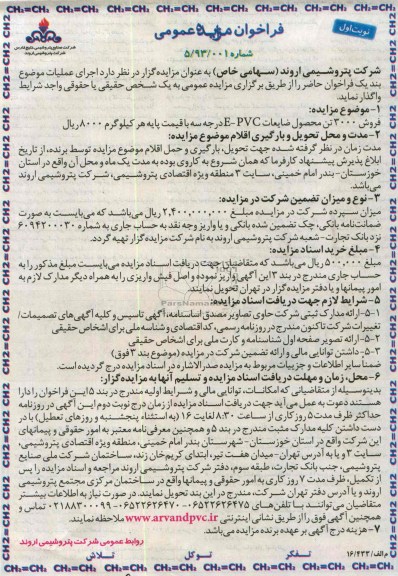 CH2=CH2 CH2=CH2 CH2=CH2 CH2=CH2 CH2=CH2 CH2=CH2 CH2=CH2 CH2=CH2
نوبت اول
فراخوان مزایده عمومی
شماره ۵/۹۳/۰۰۱
شرکت پتروشیمی اروند
شرکت پتروشیمی اروند (سهامی خاص) به عنوان مزایده‌گزار در نظر دارد اجرای عملیات موضوع
بند یک فراخوان حاضر را از طریق برگزاری مزایده عمومی به یک شخص حقیقی یا حقوقی واجد شرایط
واگذار نماید.
۱-موضوع مزایده:
فروش ۳۰۰۰ تن محصول ضایعات E-PVC درجه سه با قیمت پایه هر کیلوگرم ۸۰۰۰ ریال
۲-مدت و محل تحویل و بارگیری اقلام موضوع مزایده:
مدت زمان در نظر گرفته شده جهت تحویل، بارگیری و حمل اقلام موضوع مزایده توسط برنده، از تاریخ
ابلاغ پذیرش پیشنهاد کارفرما که همان شروع به کاروی بوده به مدت یک ماه و محل آن واقع در استان
خوزستان-بندر امام خمینی، سایت ۳ منطقه ویژه اقتصادی پتروشیمی، شرکت پتروشیمی اروند
می‌باشد.
۳-نوع و میزان تضمین شرکت در مزایده:
میزان سپرده شرکت در مزایده مبلغ ۲,۴۰۰,۰۰۰,۰۰۰ ریال می‌باشد که می‌بایست به صورت
ضمانت‌نامه بانکی، چک تضمین شده بانکی و یا واریز وجه نقد به حساب جاری به شماره ۶۰۹۴۲۰۰۰۳۰
نزد بانک تجارت-شعبه شرکت پتروشیمی اروند به نام شرکت مزایده‌گزار تهیه گردد.
۴-مبلغ خرید اسناد مزایده:
مبلغ ۵۰۰,۰۰۰ ریال می‌باشد که متقاضیان جهت دریافت اسناد مزایده می‌بایست مبلغ مذکور را به
حساب جاری مندرج در بند ۳ این آگهی واریز نموده و اصل فیش واریزی را به همراه دیگر مدارک لازم به
امور پیمانها و یا دفتر مزایده‌گزار در تهران تحویل نمایند.
۵-شرایط لازم جهت دریافت اسناد مزایده:
۵-۱-ارائه مدارک ثبتی شرکت حاوی تصاویر مصدق اساسنامه، آگهی تاسیس و کلیه آگهی‌های تصمیمات/
تغییرات شرکت تاکنون مندرج در روزنامه رسمی، کد اقتصادی و شناسه ملی برای اشخاص حقوقی
۵-۲-ارائه تصویر صفحه اول شناسنامه و کارت ملی برای اشخاص حقیقی
۵-۳-داشتن توانایی مالی و ارائه تضمین شرکت در مزایده (موضوع بند ۳ فوق)
ضمنا سایر اطلاعات و جزییات مربوط به مزایده صدرالاشاره در اسناد مزایده درج گردیده است.
۶-محل، زمان و مهلت دریافت اسناد مزایده و تسلیم آنها به مزایده‌گزار:
بدینوسیله از متقاضیانی که امکانات، توانایی مالی و شرایط اولیه مندرج در بند ۵ این فراخوان را دارا
هستند دعوت به عمل می‌آید جهت دریافت اسناد مزایده از زمان درج نوبت دوم این آگهی در روزنامه
حداکثر ظرف مدت ۵ روز کاری از ساعت ۸:۳۰ لغایت ۱۶ (به استثناء پنجشنبه و روزهای تعطیل) با در
دست داشتن کلیه مدارک مثبت مندرج در بند ۵ و همچنین معرفی‌نامه معتبر به امور حقوقی و پیمانهای
این شرکت واقع در استان خوزستان-شهرستان بندر امام خمینی، منطقه ویژه اقتصادی پتروشیمی،
سایت ۳ و یا به آدرس تهران-میدان هفت تیر، ابتدای کریم‌خان زند، ساختمان شرکت ملی صنایع
پتروشیمی، جنب بانک تجارت، طبقه سوم، دفتر شرکت پتروشیمی اروند مراجعه و اسناد مزایده را پس
از تکمیل، ظرف مدت ۷ روز کاری به امور حقوقی و پیمانها واقع در ساختمان مرکزی مجتمع پتروشیمی
اروند و یا آدرس دفتر تهران شرکت، مندرج در این بند تحویل نمایند. در صورت نیاز به اطلاعات بیشتر
متقاضیان می‌توانند با تلفن‌های ۰۶۵۲۲۶۲۶۴۷۵-۰۶۵۲۲۶۲۶۴۷۰ و ۰۲۱۸۸۳۰۰۰۹۹ تماس و
همچنین آگهی فوق را از طریق نشانی اینترنتی www.arvandpvc.ir ملاحظه نمایند.
۷-هزینه درج آگهی بر عهده برنده مزایده می‌باشد.
روابط عمومی شرکت پتروشیمی اروند
م الف/ ۱۶/۴۳۳
تفکر توکل تلاش
CH2=CH2 CH2=CH2 CH2=CH2 CH2=CH2 CH2=CH2 CH2=CH2 CH2=CH2